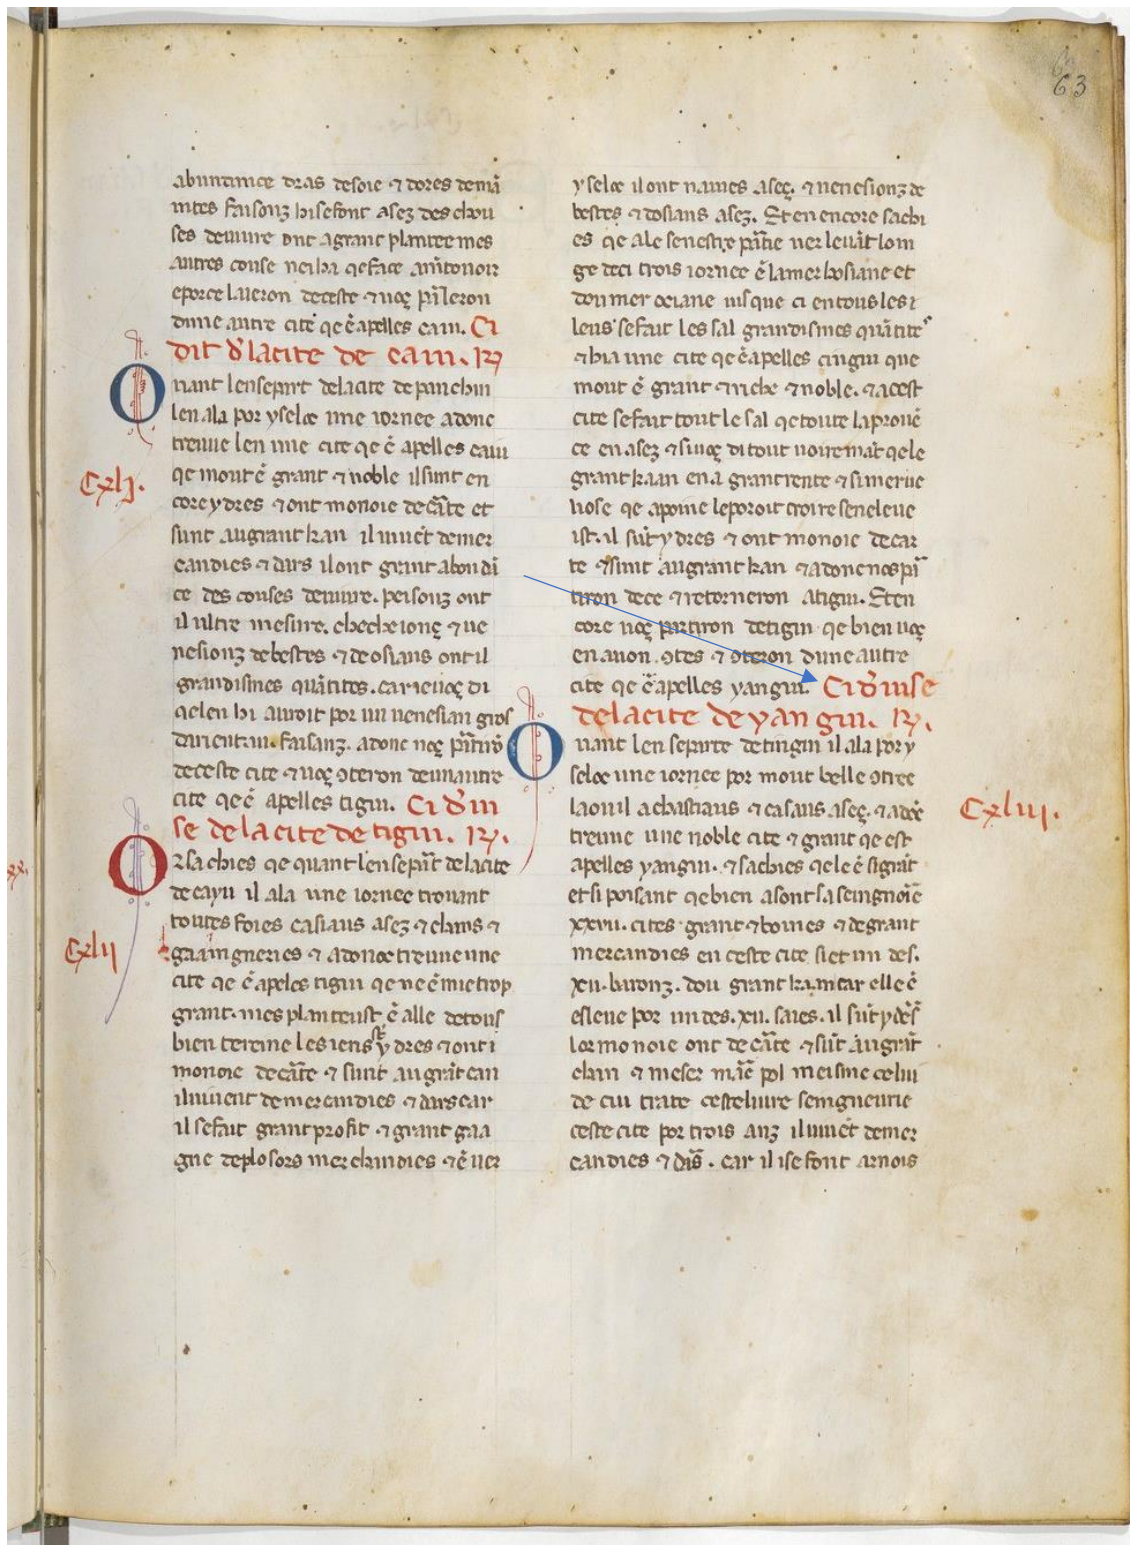 63
abundance dras desoie ⁊ dores demā
intes faisonz hisefont asez des chou
ses deuiure ont agrant plantee mes
autres couse nethi qeface amētouoir
eporce laieron deceste ⁊ uoҫ pārleron
dune autre cite qe ē apelles caiu. Ci
dit d'lacite de caiu. R
Quant lensepart delacite de panchin
len ala por yseloc une iornee adonc
treuue len une cite qe ē apelles caiu
Cxlj.
qe mout ē grant ⁊ noble il sunt en
core ydres ⁊ ont monoie de cāte et
sunt augrant kan il uiuēt demer
candies ⁊ dars il ont grant abondā
ce des couses deuiure. peisonz ont
il ultre mesure. checheionҫ ⁊ ue
nesionz debestes ⁊ de osiaus ont il
grandismes quātites. car ie uoҫ di
qe len hi auroit por un uenesian gros
darient .iii. faisanz. adonc noҫ pārtirō
deceste cite ⁊ uoҫ ɔteron deun autre
cite qe ē apelles tigiu. Ci d'ui
se de la cite de tigiu. R.
Or sachies qe quant len se pārt de lacite
de cayu il ala une iornee trouant
toutes foies casiaus asez ⁊ chans ⁊
Cxlii
gaaingneries ⁊ adonoc treuue une
cite qe ē apeles tigiu qe ne ē mie trop
grant. mes planteust ē alle de tous
bien tereine les iens sūt ydres ⁊ ont i
monoie de cāte ⁊ sunt au grāt can
il uiuent de mercandies ⁊ dars car
il se fait grant profit ⁊ grant gaa
gne deplosors merchandies ⁊ ē uer
yseloc il ont naues aseҫ. ⁊ uenesionz de
bestes ⁊ dosiaus asez. Et en encore sachi
es qe ale senestre pārtie uer leuāt lom
ge deci trois iornee ē lamer hosiane et
dou mer ociane iusque ci en tous les i
leus se fait les sal grandismes quātites
⁊ hia une cite qe ē apelles cingui que
mout ē grant ⁊ riche ⁊ noble. ⁊ acest
cite se fait tout le sal qe toute la prouē
ce en asez ⁊ si uoҫ di tout uoiremāt qe le
grant kaan en a grant rente ⁊ si merue
liose qe apoine le poroit croire sene leue
ist. il sūt ydres ⁊ ont monoie de car
te ⁊ sunt au grant kan ⁊ adonc nos pā
tiron dece ⁊ retorneron atigiu. Et en
core noҫ partiron detigiu qe bien uoҫ
en auon ɔtes ⁊ ɔteron dune autre
cite qe ē apelles yangiu. Ci d'uise
de la cite de yan giu. R.
Quant len separte de tingiu il ala por y
seloc une iornee por mout belle ɔtree
la ou il a chastiaus ⁊ casaus aseҫ. ⁊ adōc
Cxliii.
treuue une noble cite ⁊ grant qe est
apelles yangiu. ⁊ sachies qe le ē si grāt
et si poisant qe bien a sont sa seingnorie
xxvii. cites grant ⁊ boines ⁊ de grant
mercandies en ceste cite siet un des.
xii. baronz. dou grant kaan car elle ē
esleue por un des .xii. saies. il sūt ydrēs
lor monoie ont de cāte ⁊ sūt au grāt
chan ⁊ meser marc pol meisme celui
de cui trate ceste liure seingneurie
ceste cite por trois anz il uiuēt demer
candies ⁊ dars. car il ise font arnois